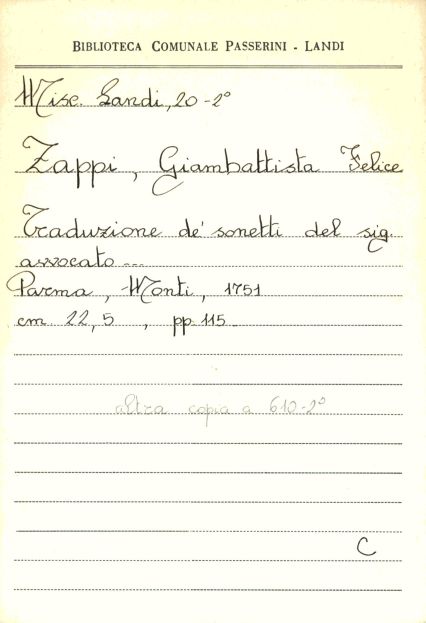 BIBLIOTECA COMUNALE PASSERINI - LANDI
Misc. Landi, 20-2°
Zappi, Giambattista Felice
Traduzione de' sonetti del sig.
avvocato ...
Parma, Monti, 1751
cm. 22,5, pp. 115
altra copia a 610-2°
C